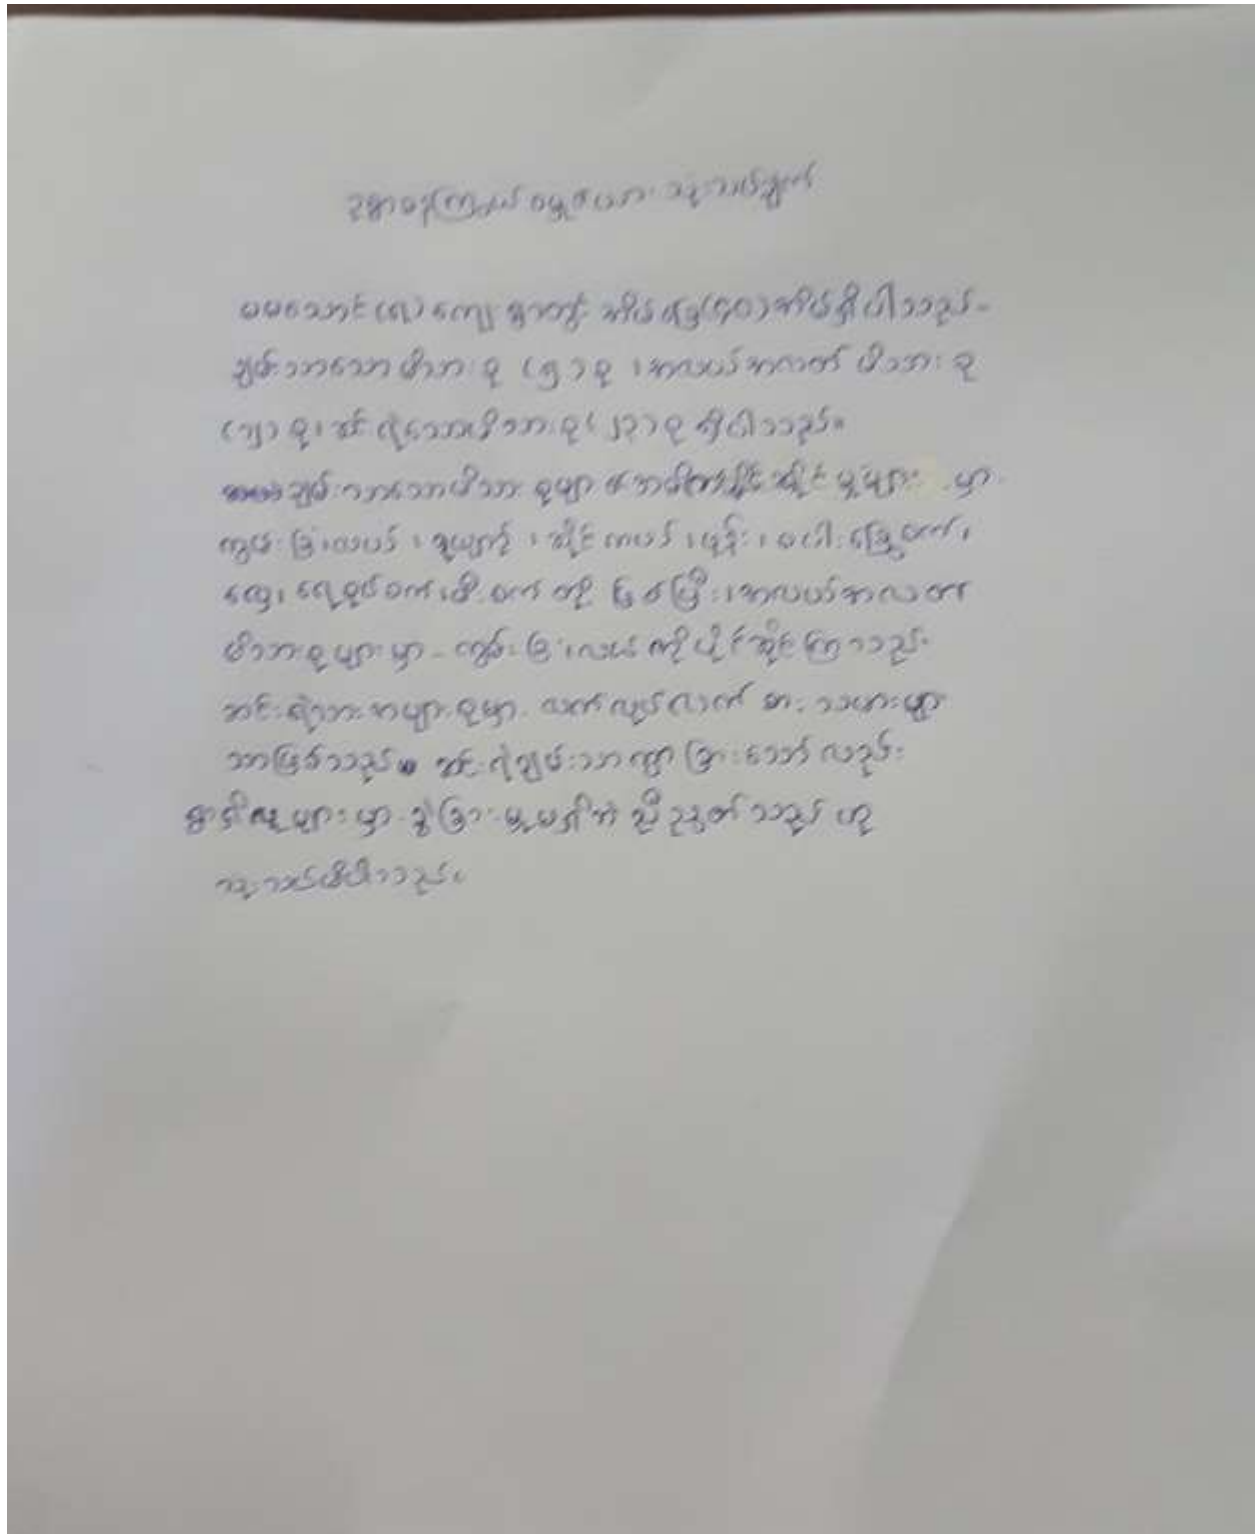 ဥစ္စာဓနကြွယ်ဝမှုဇယား သုံးသပ်ချက်
မမသောင် (ရေ) ကျေးရွာတွင် အိမ်ခြေ (၄၀) အိမ်ရှိပါသည်။
ချမ်းသာသော မိသားစု (၅) စု ၊ အလယ်အလတ် မိသားစု
(၁၂) စု၊ ဆင်းရဲသောမိသားစု (၂၃) စု ရှိပါသည်။
ချမ်းသာသောမိသားစုများ ၏ အဓိကပိုင်ဆိုင်မှုများ မှာ
ကျွမ်းခြံ၊ လယ် ၊ ၊ ဆိုင်ကယ် ၊ ဖုန်း ၊ စပါးခြွေစက်၊
လှေ၊ ရေစုပ်စက်၊ မီးစက် တို့ ဖြစ်ပြီး ၊ အလယ်အလတ်
မိသားစုများမှာ ကျွမ်းခြံ၊ လယ် ကိုပိုင်ဆိုင်ကြသည်။
ဆင်းရဲသား စုမှာ လက်လုပ်လက် စား သမားများ
သာဖြစ်သည်။ ဆင်းရဲချမ်းသာကွာ ခြားသော်လည်း
ရွာရှိလူများမှာ ခွဲခြားမှုမရှိဘဲ ညီညွတ်သည် ဟု
သုံးသပ်မိပါသည်။